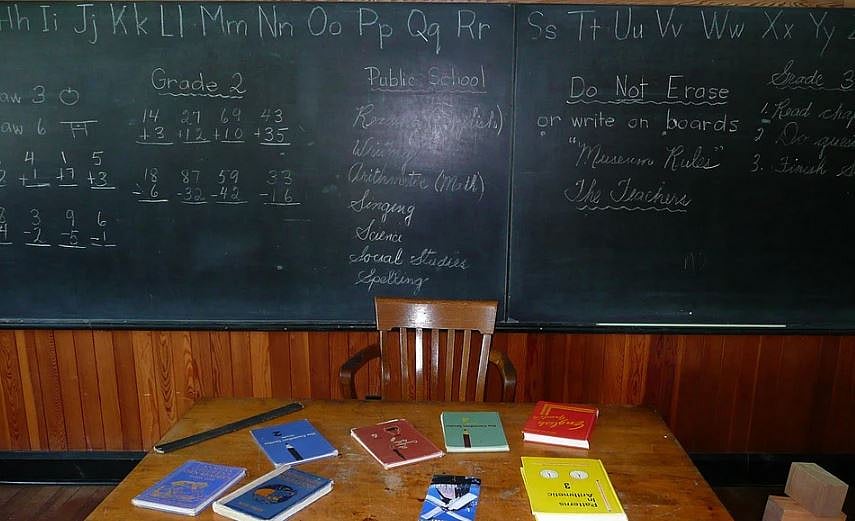 Hh Ii Jj Kk Ll Mm Nn Oo Pp Qq Rr Ss Tt Uu Vv Ww Xx Yy
aw 3
aw 6
4 1 5
+1 +7 +3
3 9 6
-2 -5 -1
Grade 2
14 27 69 43
+3 +12 +10 +35
18 87 59 33
-6 -32 -42 -16
Public School
(English)
Writing
Arithmetic (Math)
Singing
Science
Social Studies
Spelling
Do Not Erase
or write on boards
"Museum Rules"
The Teachers
Grade 3
1. Read chap
2 Do ques
3. Finish
English
Patterns
In
Arithmetic
3
2